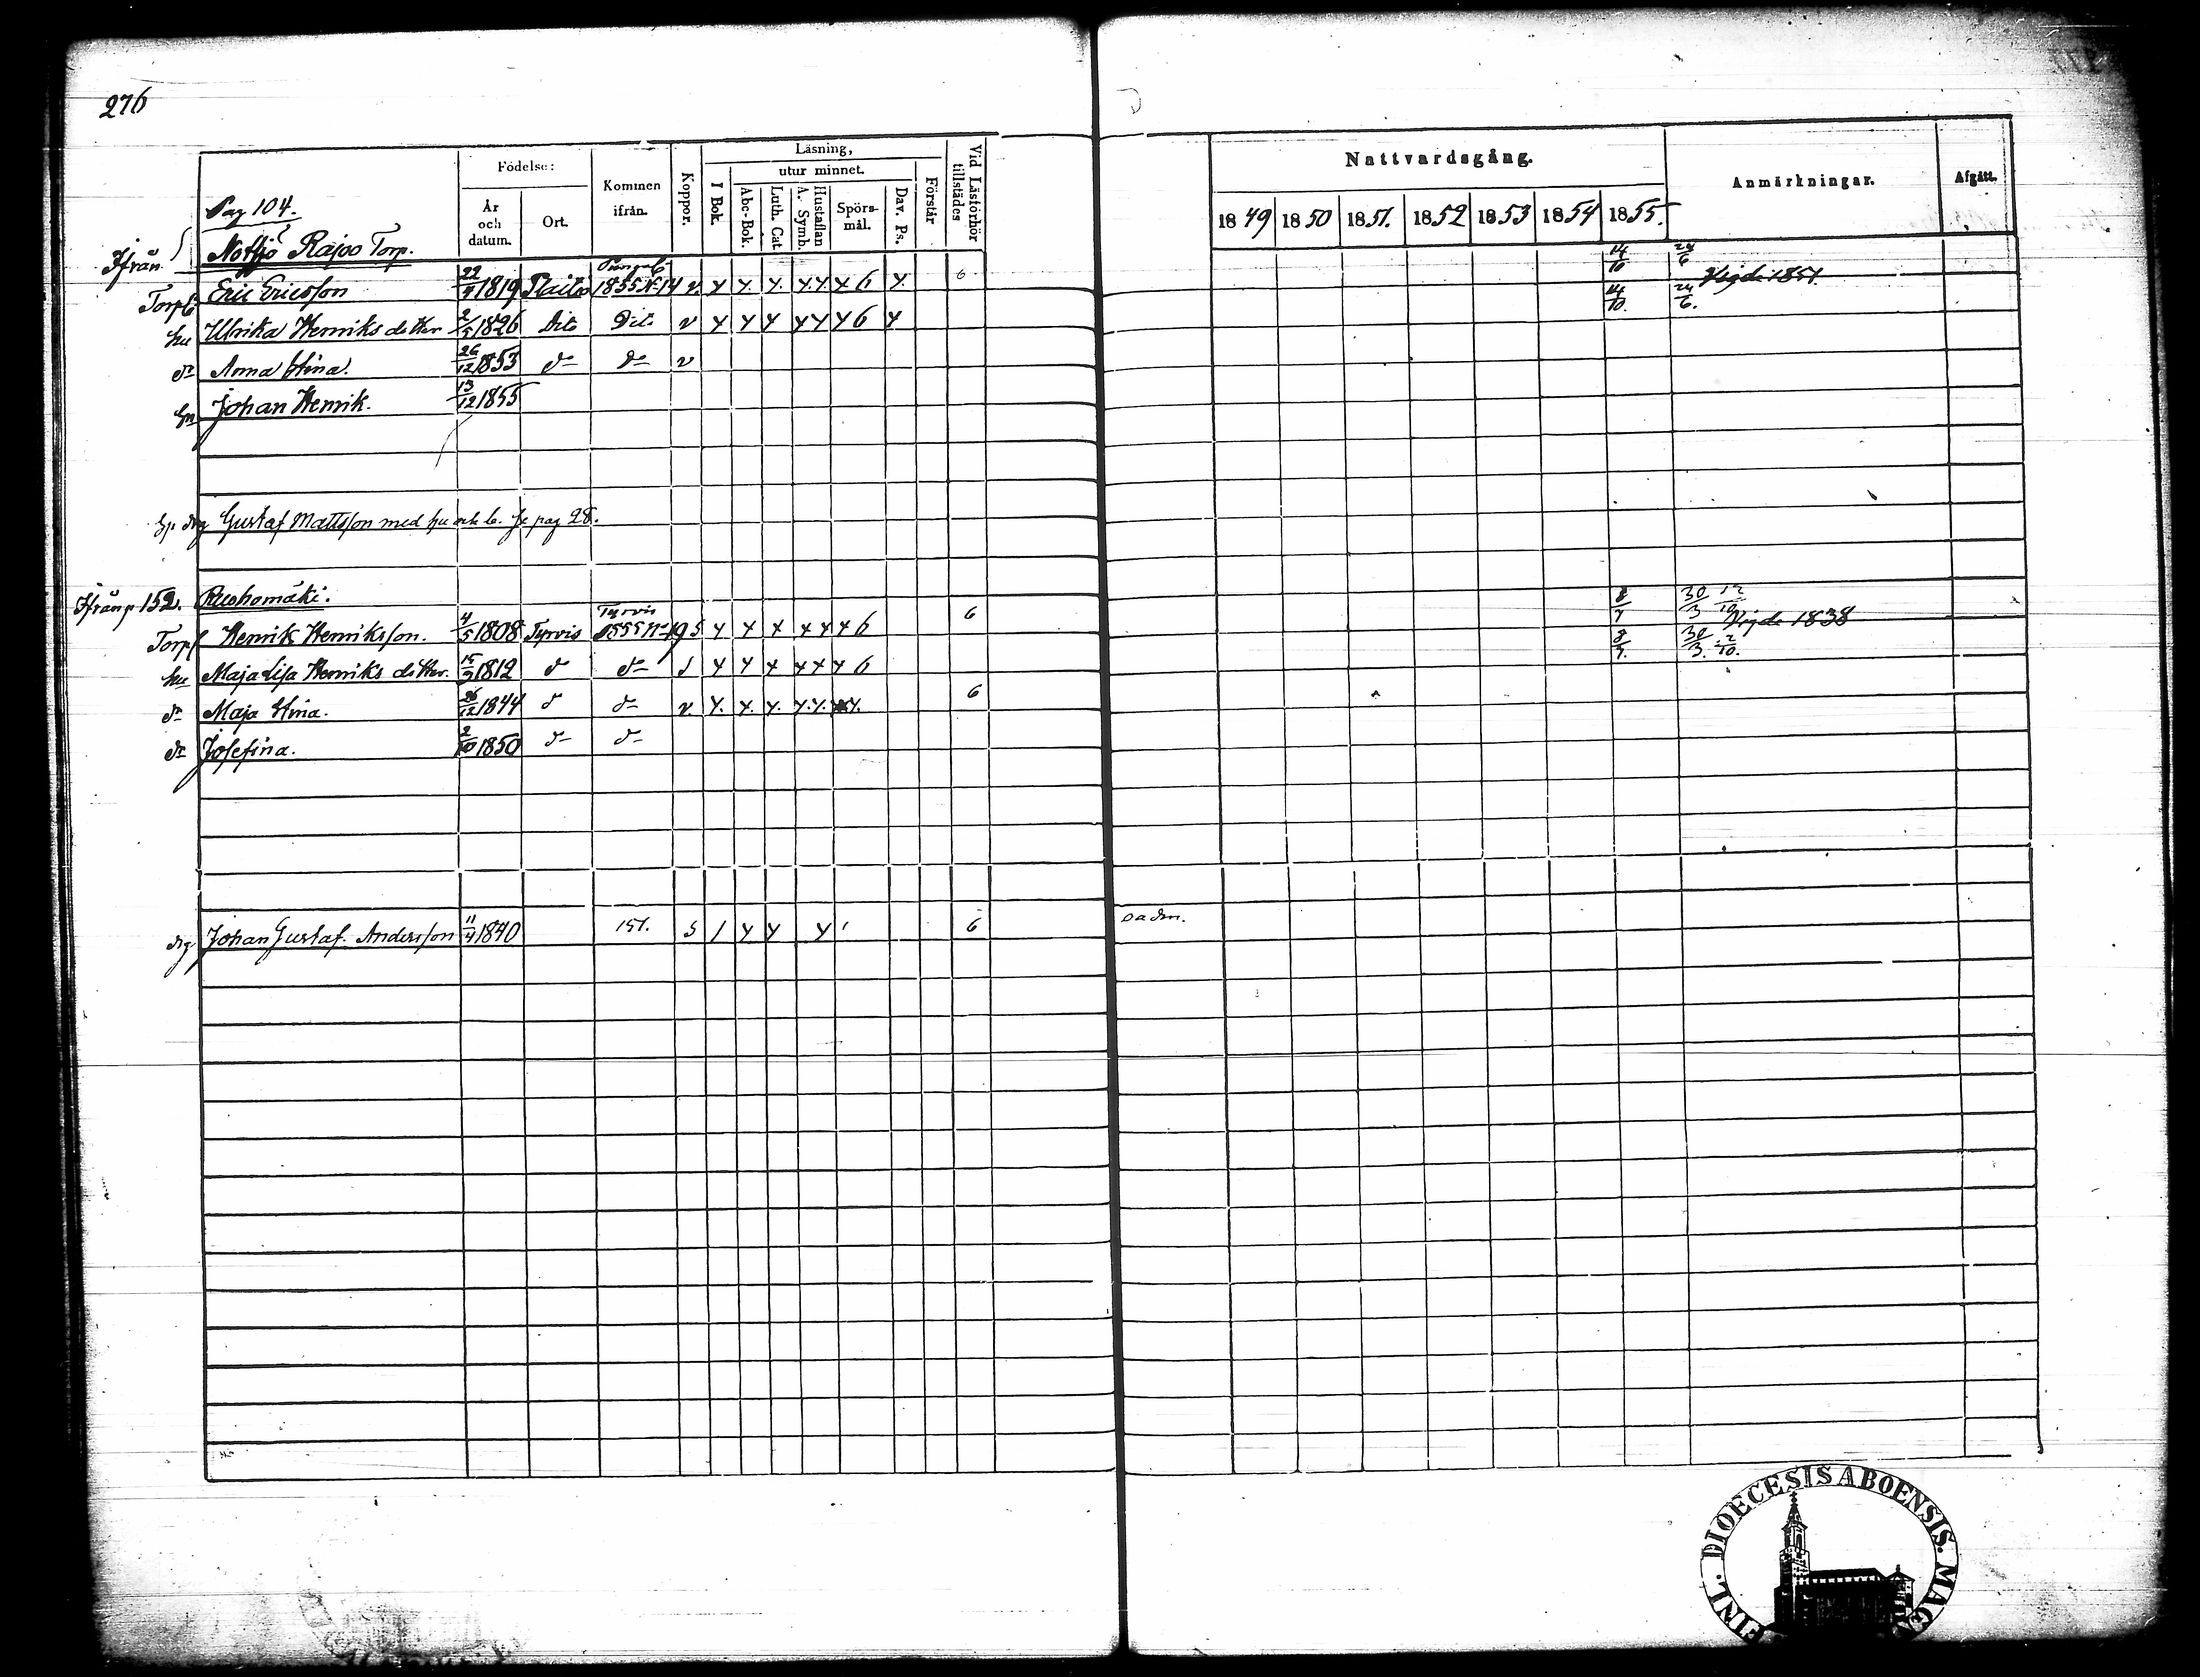 276
Födelse:
Läsning,
utur minnet.
Kommen ifrån.
Koppor.
År och datum.
Ort.
I Bok.
Abc-Bok.
Luth. Cat.
Hustaflan A. Symb.
Spörs-mål.
Dav. Ps.
Förstår
Vid Läsförhör tillstädes
Nattvardsgång.
Anmärkningar.
Afgått.
1849 1850 1851. 1852 1853 1854 1855.
Pag 104.
Ifrån Rajoo Torp.
Torp Eric Ericsson 22 1819 1855 N 14 v. 6 6 14/10 24/6 Vigde 1851.
hu Ulrika Henriks dotter 2/5 1826 Dito Dito v 6 14/10. 24/6.
dr Anna Stina. 26/12 1853 do do v
Johan Henrik. 13/12 1855
Gustaf Mattsson med hu och b. se pag 28.
Ifrån p 152. Ruohomäki.
Torp Henrik Henriksson. 4/5 1808 Tyrvis Tyrvis 1855 N 19 s 6 6 8/7 30/3 Vigde 1838
hu Maja Lisa Henriks dotter. 15 1812 d do s 6 8/7. 30/3. 2/10.
dr Maja Stina. 26/12 1844 d do v. 6
dr Josefina. 2/10 1850 do do
drg Johan Gustaf Andersson 11/4 1840 151. s 6
FINL. DIOECESIS ABOENSIS. MAG